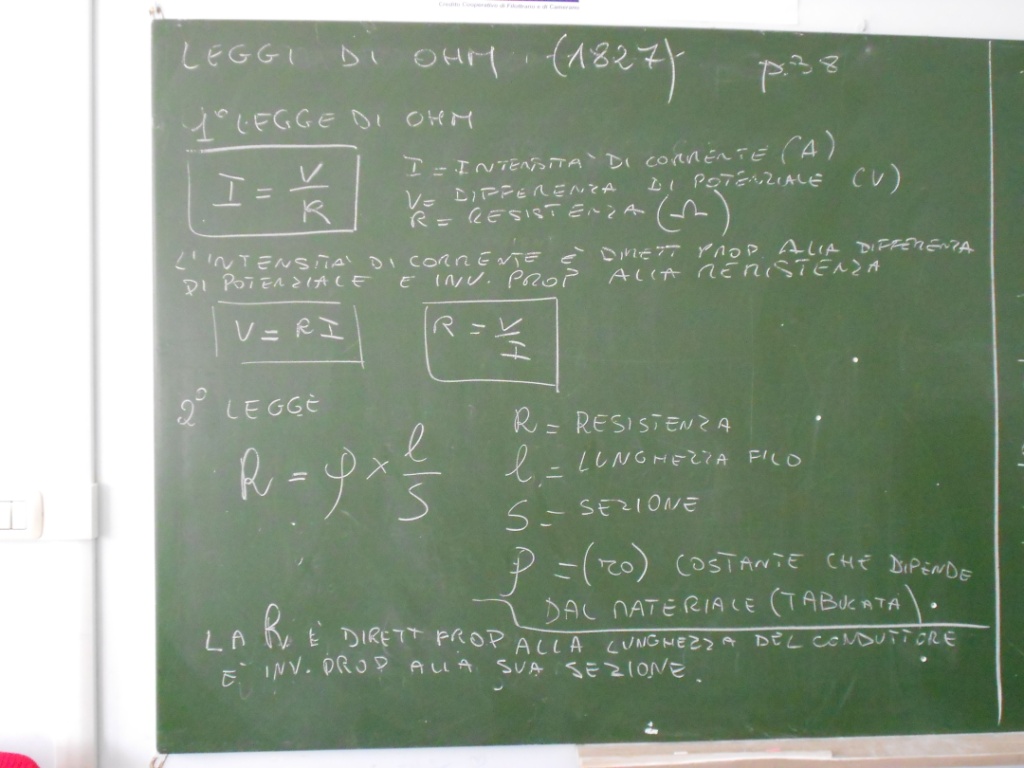 Credito Cooperativo di Filottrano e di Camerano
LEGGI DI OHM. (1827) p.38
1° LEGGE DI OHM
I = V/R
I = INTENSITA' DI CORRENTE (A)
V= DIFFERENZA DI POTENZIALE (V)
R= RESISTENZA (Ω)
L'INTENSITA' DI CORRENTE È DIRETT PROP ALLA DIFFERENZA
DI POTENZIALE E INV. PROP ALLA RESISTENZA
V = RI
R = V/I
2° LEGGE
R = ρ × l/S
R = RESISTENZA
l = LUNGHEZZA FILO
S = SEZIONE
ρ = (ro) COSTANTE CHE DIPENDE
DAL MATERIALE (TABULATA)
LA R È DIRETT PROP ALLA LUNGHEZZA DEL CONDUTTORE
E INV. PROP ALLA SUA SEZIONE.